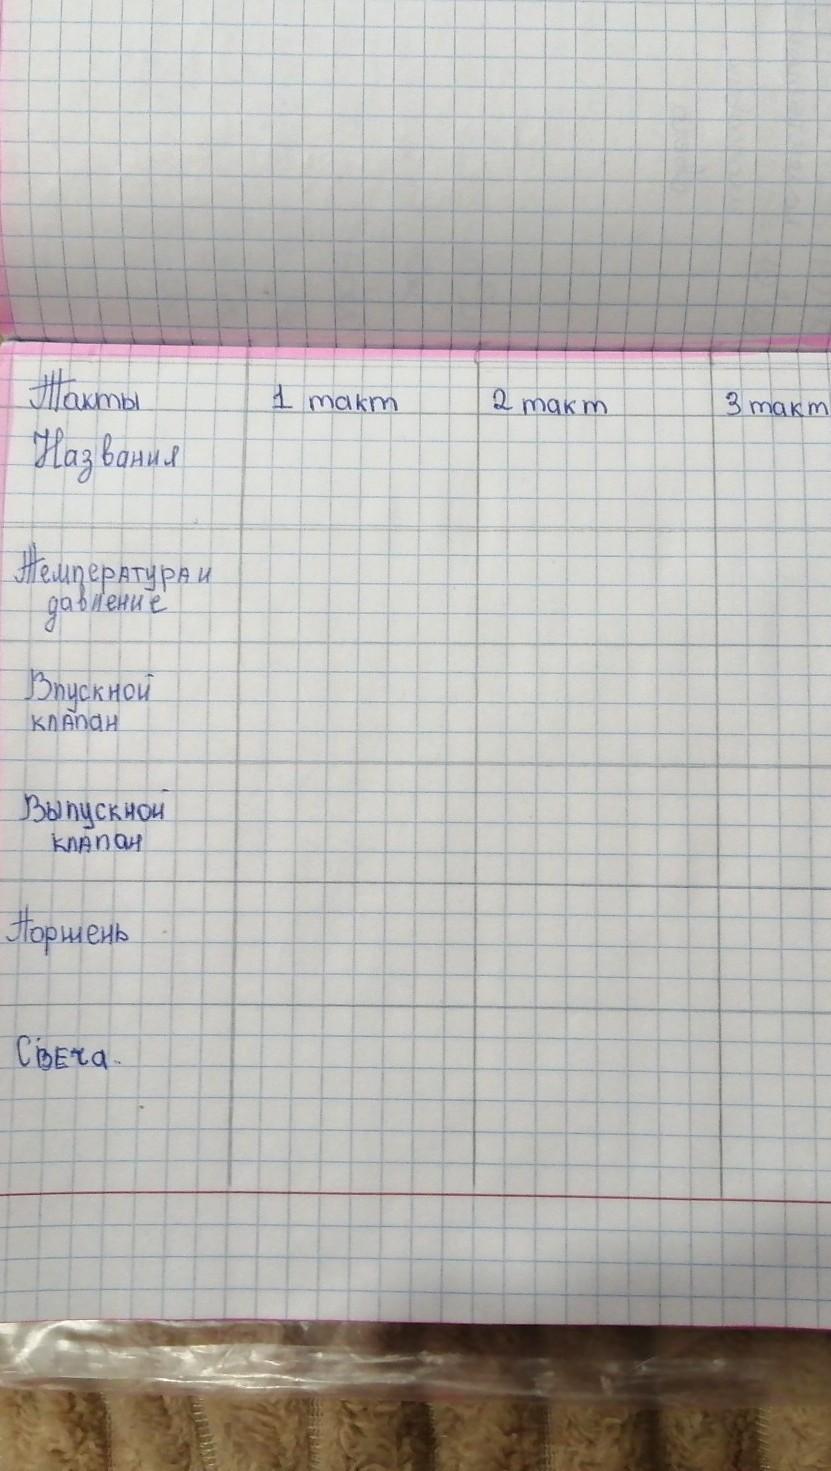 Такты 1 такт 2 такт 3 такт
Названия
Температура и
давление
Впускной
клапан
Выпускной
клапан
Поршень
Свеча.